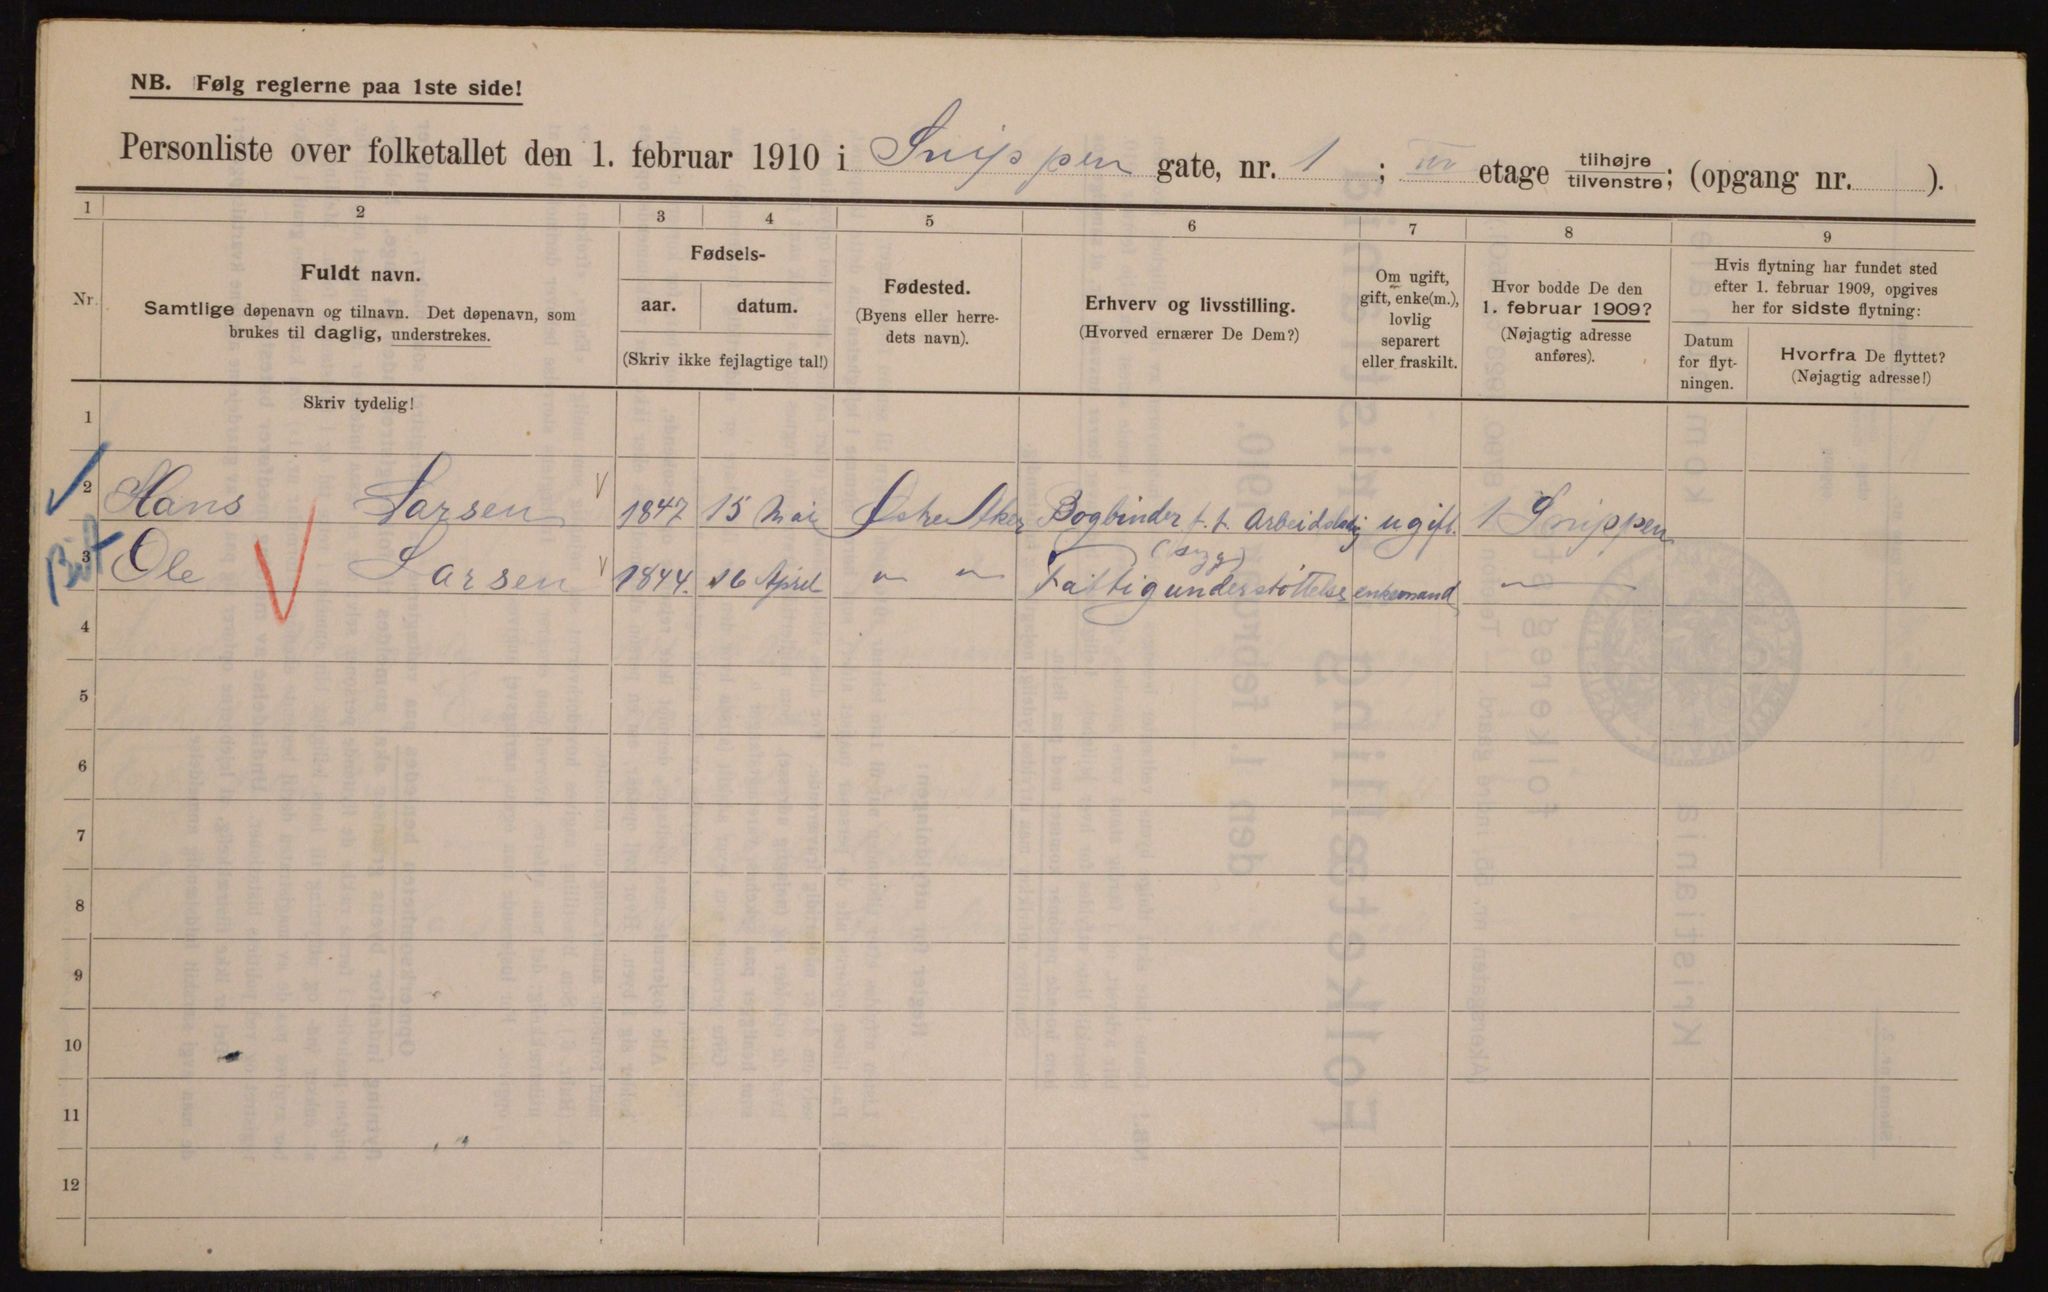 NB. Følg reglerne paa 1ste side!
Personliste over folketallet den 1. februar 1910 i Snippen gate, nr. 1 ; III etage tilhøjre/tilvenstre; (opgang nr. ).
1 2 3 4 5 6 7 8 9
Nr.
Fuldt navn.
Samtlige døpenavn og tilnavn. Det døpenavn, som
brukes til daglig, understrekes.
Skriv tydelig!
Fødsels-
aar. datum.
(Skriv ikke fejlagtige tal!)
Fødested.
(Byens eller herre-
dets navn).
Erhverv og livsstilling.
(Hvorved ernærer De Dem?)
Om ugift,
gift, enke(m.),
lovlig
separert
eller fraskilt.
Hvor bodde De den
1. februar 1909?
(Nøjagtig adresse
anføres).
Hvis flytning har fundet sted
efter 1. februar 1909, opgives
her for sidste flytning:
Datum
for flyt-
ningen.
Hvorfra De flyttet?
(Nøjagtig adresse!)
1
2 Hans Larsen 1847 15 Mai Østre Aker Bogbinder f. t. Arbeidsledig ugift. 1 Snippen
(syg)
3 Ole Larsen 1844. 16 April " " Fattigunderstøttelse enkemand "
4
5
6
7
8
9
10
11
12